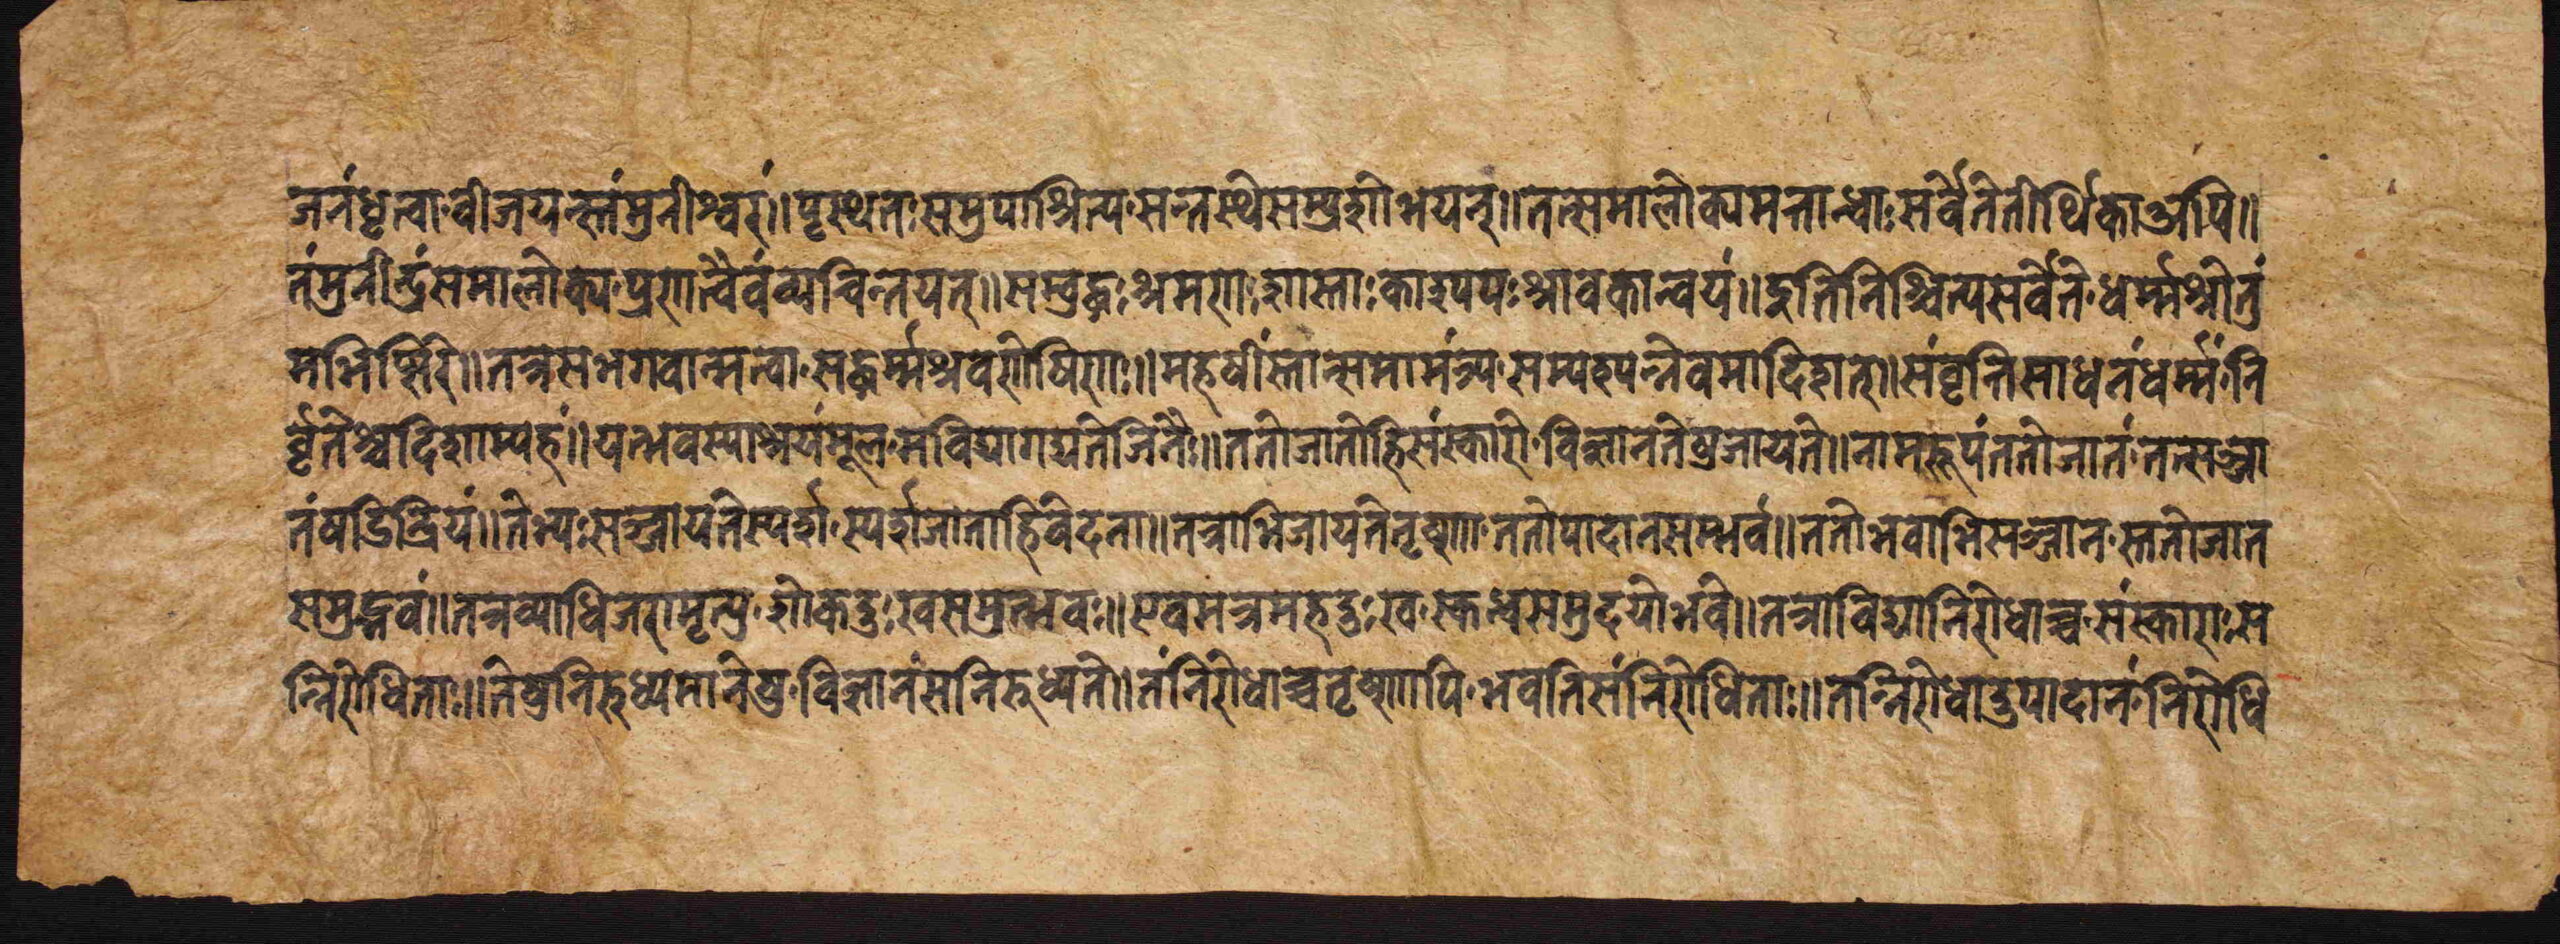 जनंधृत्वा वीजयन्स्तंमुनीश्वरं॥पृस्थतःसमुपाश्रित्य सन्तस्थेसम्प्रशोभयन्॥तत्समालोक्यमत्तान्धाःसर्वेतेतीर्थिकाअपि॥
तंमुनीन्द्रंसमालोक्य पुराणैवंव्यचिन्तयत्॥सम्बुद्धःश्रमणःशास्ताःकाश्यपःश्रावकान्वयं॥इतिनिश्चित्यसर्वेते धर्म्मश्रोतुं
मभिप्सिरे॥तत्रसभगवान्मत्वा सद्धर्म्मश्रवणोषिणः॥महर्षींस्तान्समामंत्र्य सम्पश्यन्नेवमादिशत्॥संवृत्तिसाधनंधर्म्मं नि
र्वृतेश्चदिशाम्यहं॥यत्भवस्याश्रयंमूल मविद्यागद्यतेजिनैः॥ततोजातोहिसंस्कारो विज्ञानतेषुजायते॥नामरूपंततोजातं तत्सञ्जा
तंषडिन्द्रियं॥तेभ्यःसञ्जायतेस्पर्श स्पर्शजाताहिवेदना॥तत्राभिजायतेतृष्णा ततोपादानसम्भवं॥ततोभवाभिसञ्जात स्ततोजात
समुद्भवं॥तत्रव्याधिजरामृत्यु शोकदुःखसमुत्भवः॥एवमत्रमहदुःख स्कन्धसमुदयोभवे॥तत्राविद्यानिरोधाच्च संस्काराःस
न्निरोधिताः॥तेषुनिरुध्यमानेषु विज्ञानंसनिरुध्यते॥तंनिरोधाच्चतृष्णापि भवतिसंनिरोधिताः॥तन्निरोधादुपादानं निरोधि